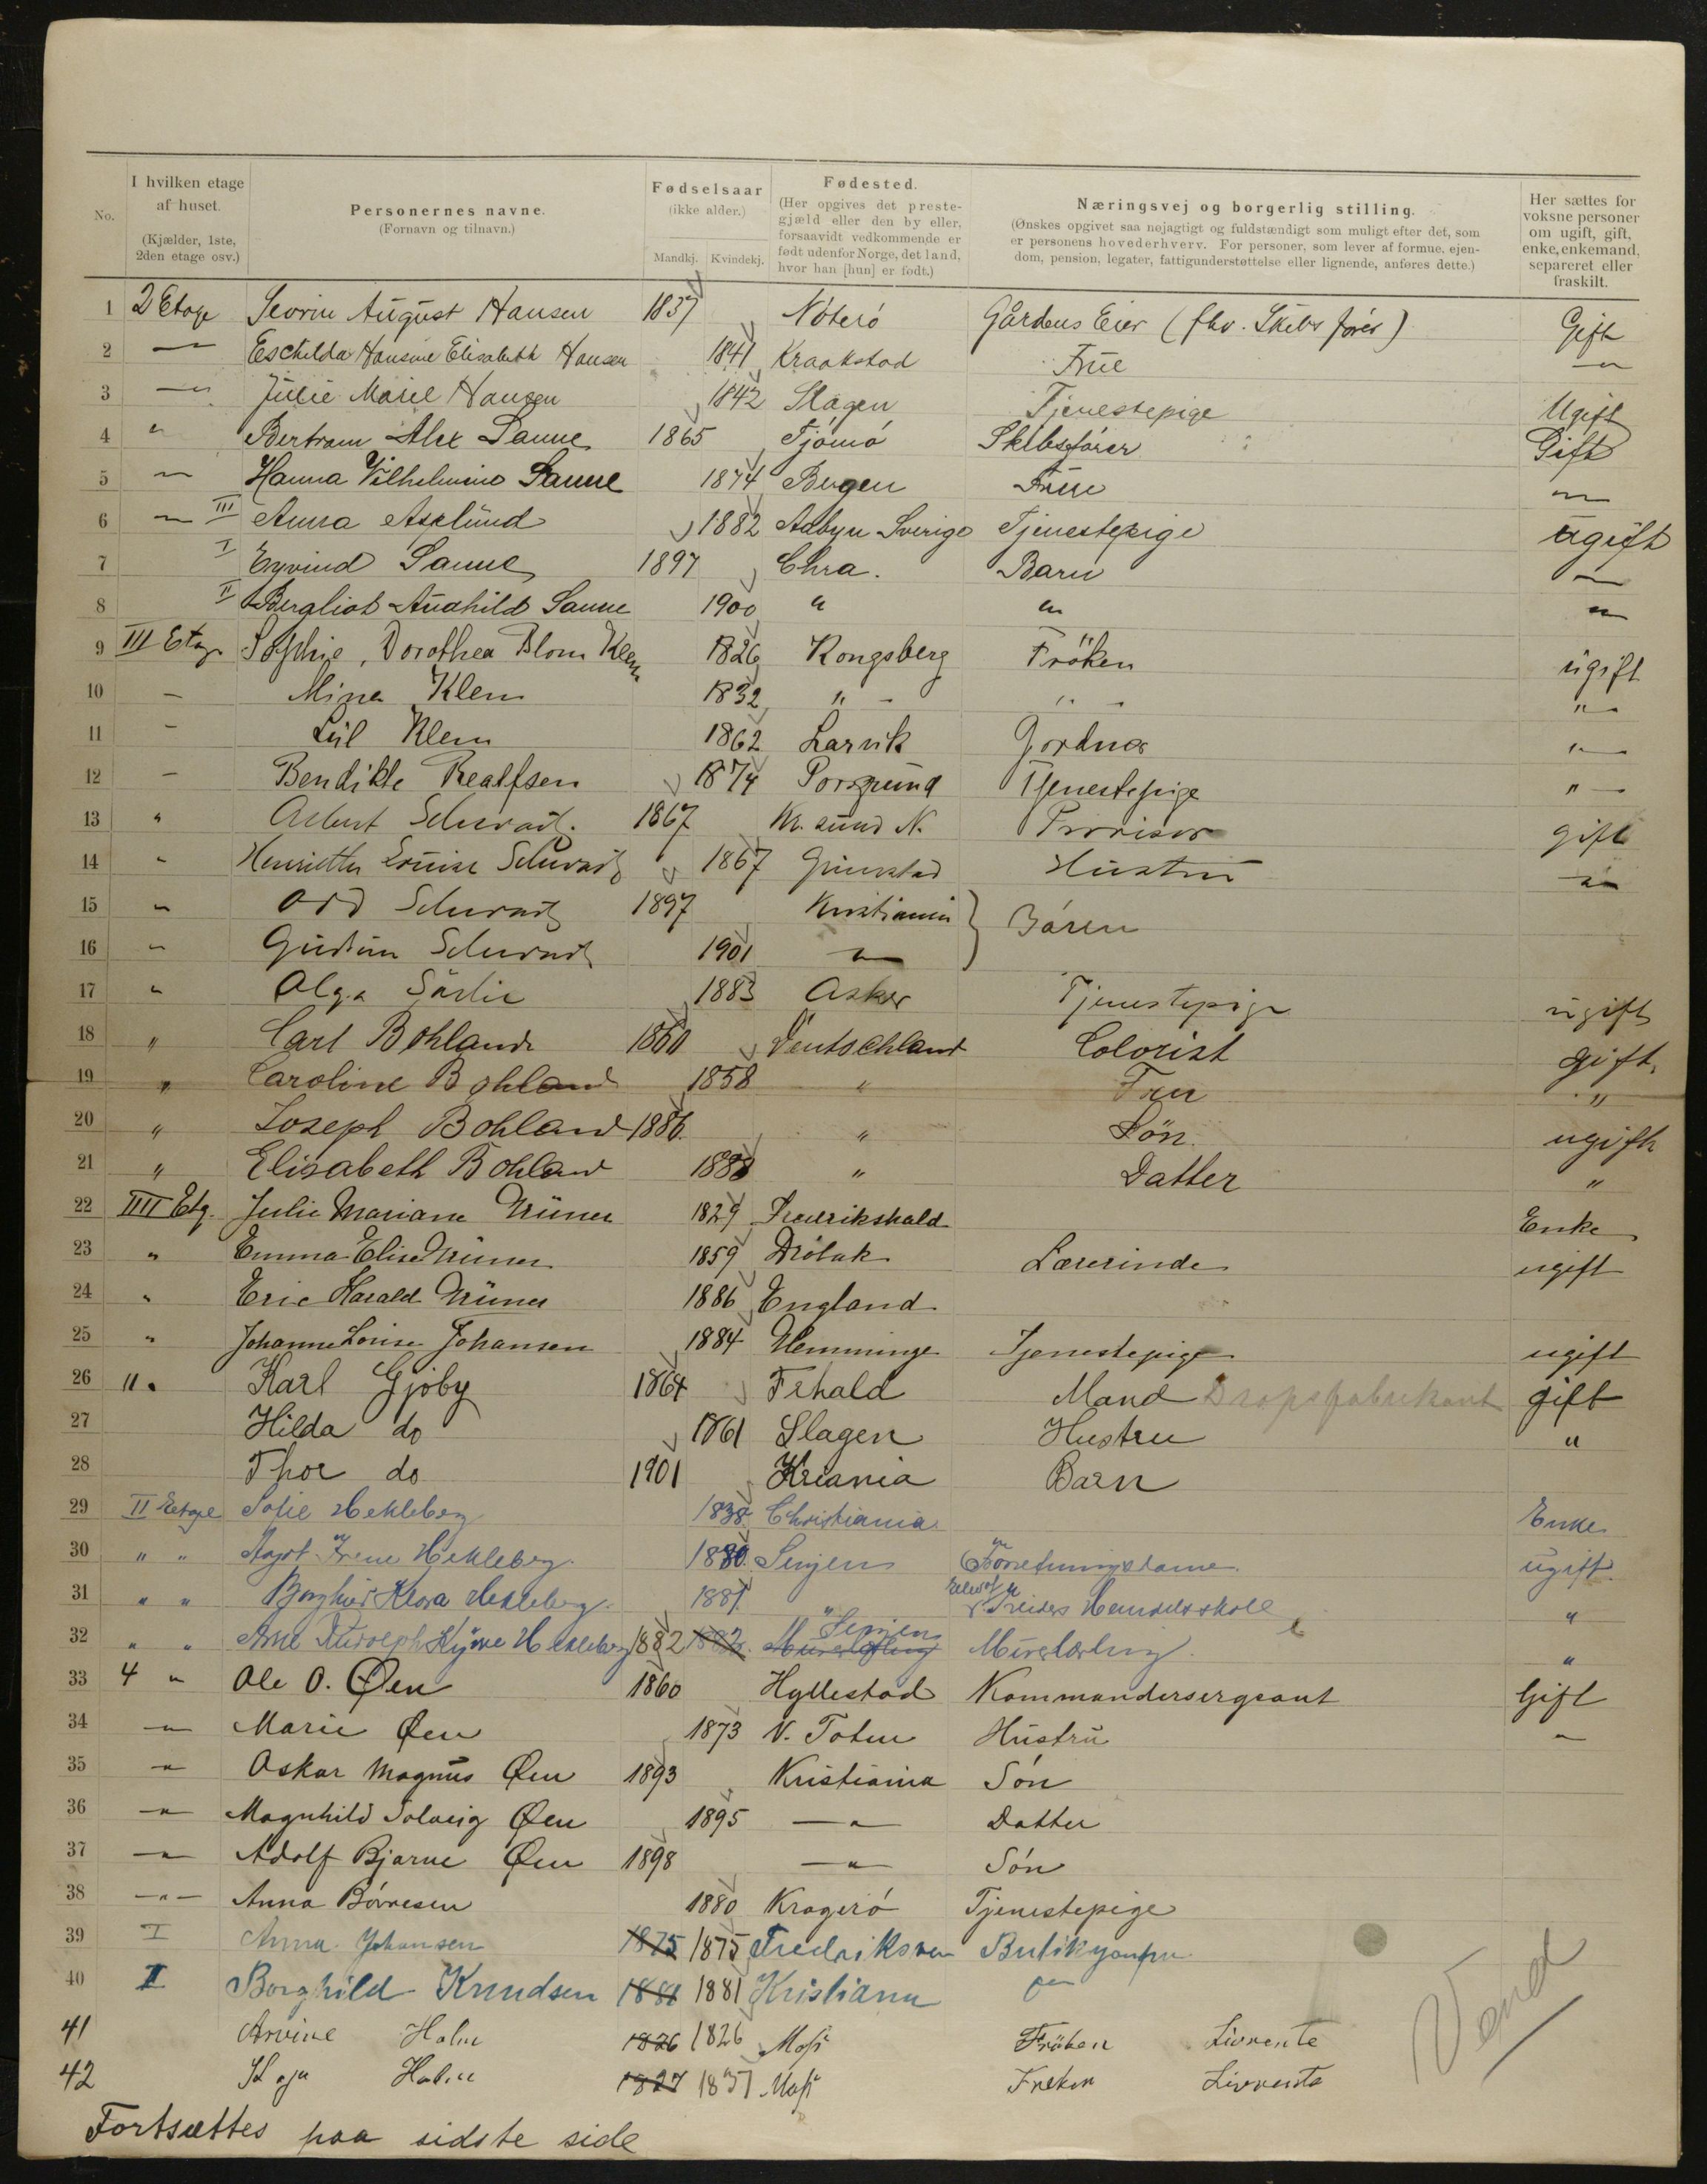 No.
I hvilken etage af huset. (Kjælder, 1ste, 2den etage osv.)
Personernes navne. (Fornavn og tilnavn.)
Fødselsaar (ikke alder.) Mandkj. Kvindekj.
Fødested. (Her opgives det prestegjæld eller den by eller, forsaavidt vedkommende er født udenfor Norge, det land, hvor han [hun] er født.)
Næringsvej og borgerlig stilling. (Ønskes opgivet saa nøjagtigt og fuldstændigt som muligt efter det, som er personens hovederhverv. For personer, som lever af formue, ejendom, pension, legater, fattigunderstøttelse eller lignende, anføres dette.)
Her sættes for voksne personer om ugift, gift, enke, enkemand, separeret eller fraskilt.
1 2 Etage Sevrin August Hansen 1837 Nøterø Gårdens Eier (fhv. Skibsfører) Gift
2 — Eschilda Hansine Elisabeth Hansen 1841 Kraakstad Frue "
3 — Julie Marie Hansen 1842 Slagen Tjenestepige Ugift
4 " Bertram Alex Sanne 1865 Tjømø Skibsfører Gift
5 — Hanna Vilhelmine Sanne 1874 Bergen Frue "
6 — III Anna Asplund 1882 Sverige Tjenestepige ugift
7 I Eyvind Sanne 1897 Chra. Barn "
8 II Bergliot Audhild Sanne 1900 " " "
9 III Etag. Sophie, Dorothea Blom Klem 1826 Kongsberg Frøken ugift
10 — Mina Klem 1832 " " "
11 — Klem 1862 Larvik "
12 — Bendikte Realfsen 1874 Porsgrund Tjenestepige "
13 " Albert Schwartz 1867 Kr.sund N. Provisor gift
14 " Henriette Louise Schwartz 1867 Grimstad Hustru "
15 " Odd Schwartz 1897 Kristiania } Børn
16 " Gudrun Schwartz 1901 "
17 " Olga Sörlie 1883 Asker Tjenestepige ugift
18 " Carl Bohland 1860 Deutschland Colorist gift.
19 " Caroline Bohland 1858 " Fru "
20 " Joseph Bohland 1886 " Sön ugift
21 " Elisabeth Bohland 1888 " Datter "
22 IIII Etg. Julie Mariane Grüner 1829 Fredrikshald Enke
23 " Emma Elise Grüner 1859 Drøbak Lærerinde ugift
24 " Eric Harald Grüner 1886 England
25 " Johanne Louise Johansen 1884 Tjenestepige ugift
26 " Karl Gjøby 1864 Frhald Mand Dropsfabrikant gift
27 Hilda do 1861 Slagen Hustru "
28 Thor do 1901 Kriania Barn
29 II Eetage Sofie Hekleberg 1838 Christiania Enke
30 " " Hekleberg 1880 Senjen Forretningsdame ugift
31 " " Borghild Klara Hekleberg 1881 " Elev af Treiders Handelsskole "
32 " " Arne Rudolph Hekleberg 1882 1882 Senjen Murerlærling "
33 4 " Ole O. Øen 1860 Hyllestad Kommandersergeant Gift
34 — Marie Øen 1873 V. Toten Hustru "
35 " Oskar Magnus Øen 1893 Kristiania Søn
36 " Magnhild Solveig Øen 1895 — " — Datter
37 " Adolf Bjarne Øen 1898 — " — Søn
38 — " — Anna Børresen 1880 Kragerø Tjenestepige
39 I Anna Johansen 1875 1875 Fredriksværn Butikjomfru
40 II Borghild Knudsen 1881 1881 Kristiania "
41 Holm 1826 1826 Moss Frøken Livrente
42 Holm 1827 Moss Frøken Livrente
Fortsættes paa sidste side
Vend